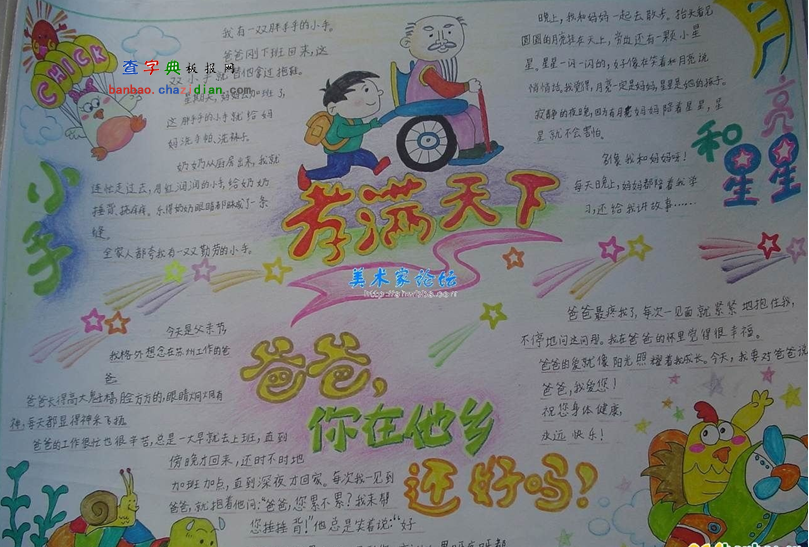 CHICK
查字典板报网
banbao.chazidian.com
小手
我有一双胖手手的小手。
爸爸刚下班回来,这
双小手就替他拿过拖鞋。
这胖手手的小手就给妈
妈洗手帕、洗袜子。
奶奶从厨房出来,我就
缝。
全家人都夸我有一双勤劳的小手。
孝满天下
美术家论坛
晚上,我和妈妈一起去散步。抬头看见
圆圆的月亮挂在天上,旁边还有一颗小星
星。星星一闪一闪的,好像在笑着和月亮说
悄悄话。我觉得,月亮一定是妈妈,星星是他的孩子。
寂静的夜晚,因为有月亮妈妈陪着星星,星
星就不会害怕。
每天晚上,妈妈都陪着我学
习,还给我讲故事……
亮
和
星星
今天是父亲节
我格外想念在苏州工作的爸
爸
爸爸长得高大魁梧,脸方方的,眼睛炯炯有
神,每天都显得神采飞扬
爸爸的工作很忙也很辛苦,总是一大早就去上班,直到
傍晚才回来,还时不时地
加班加点,直到深夜才回家。每次我一见到
爸爸,就抱着他问:“爸爸,您累不累?我来帮
您捶捶背!”他总是笑着说:“好
爸爸,
你在他乡
还好吗!
爸爸最疼我了,每次一见面就紧紧地抱住我,
不停地问这问那。我在爸爸的怀里觉得很幸福。
爸爸的爱就像阳光照耀着我成长。今天,我要对爸爸说
爸爸,我爱您!
祝您身体健康,
永远快乐!